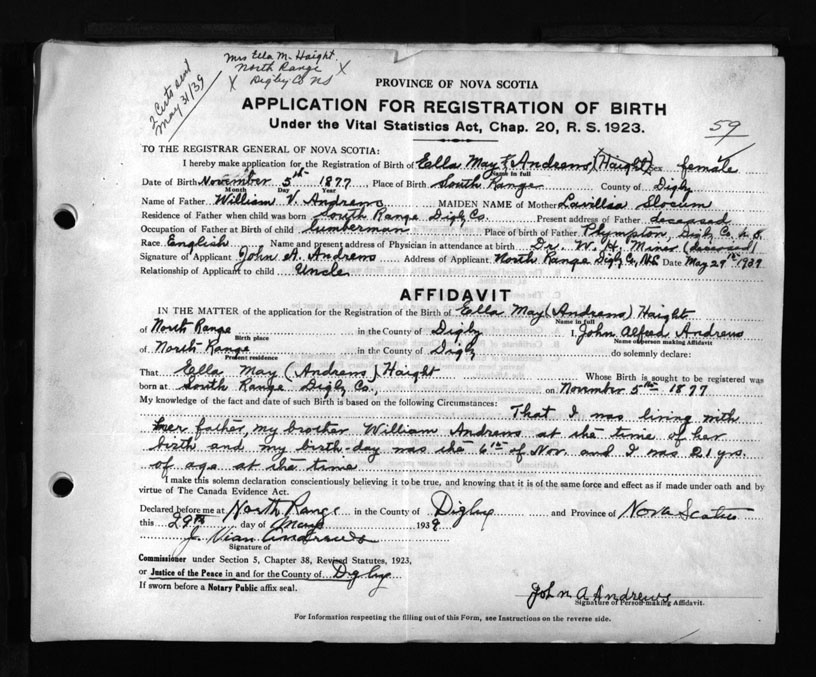 2 Certs sent
May 31/39
Mrs Ella M. Haight
North Range
X Digby Co NS X
PROVINCE OF NOVA SCOTIA
APPLICATION FOR REGISTRATION OF BIRTH
Under the Vital Statistics Act, Chap. 20, R. S. 1923.
59
TO THE REGISTRAR GENERAL OF NOVA SCOTIA:
I hereby make application for the Registration of Birth of Ella May Andrews (Haight) Sex female
Name in full
Date of Birth November 5th 1877 Place of Birth South Range County of Digby
Month Day Year
Name of Father William V. Andrews MAIDEN NAME of Mother Lavillsa Slocum
Residence of Father when child was born South Range Digby Co. Present address of Father deceased
Occupation of Father at Birth of child Lumberman Place of birth of Father Plympton, Digby Co. N.S.
Race English Name and present address of Physician in attendance at birth Dr. W. H. Minor (deceased)
Signature of Applicant John A. Andrews Address of Applicant North Range Digby Co, N.S. Date May 29th 1939
Relationship of Applicant to child Uncle
AFFIDAVIT
IN THE MATTER of the application for the Registration of the Birth of Ella May (Andrews) Haight
Name in full
of North Range in the County of Digby I, John Alfred Andrews
Birth place Name of person making Affidavit
of North Range in the County of Digby do solemnly declare:
Present residence
That Ella May (Andrews) Haight Whose Birth is sought to be registered was
born at South Range Digby Co., on November 5th 1877
My knowledge of the fact and date of such Birth is based on the following Circumstances:
That I was living with
her father, my brother William Andrews at the time of her
birth and my birth-day was the 6th of Nov. and I was 21 yrs.
of age at the time
I make this solemn declaration conscientiously believing it to be true, and knowing that it is of the same force and effect as if made under oath and by
virtue of The Canada Evidence Act.
Declared before me at North Range in the County of Digby and Province of Nova Scotia
this 29th day of May 1939
J. Andrews
Signature of
Commissioner under Section 5, Chapter 38, Revised Statutes, 1923,
or Justice of the Peace in and for the County of Digby
If sworn before a Notary Public affix seal.
John A Andrews
Signature of Person making Affidavit.
For Information respecting the filling out of this Form, see Instructions on the reverse side.